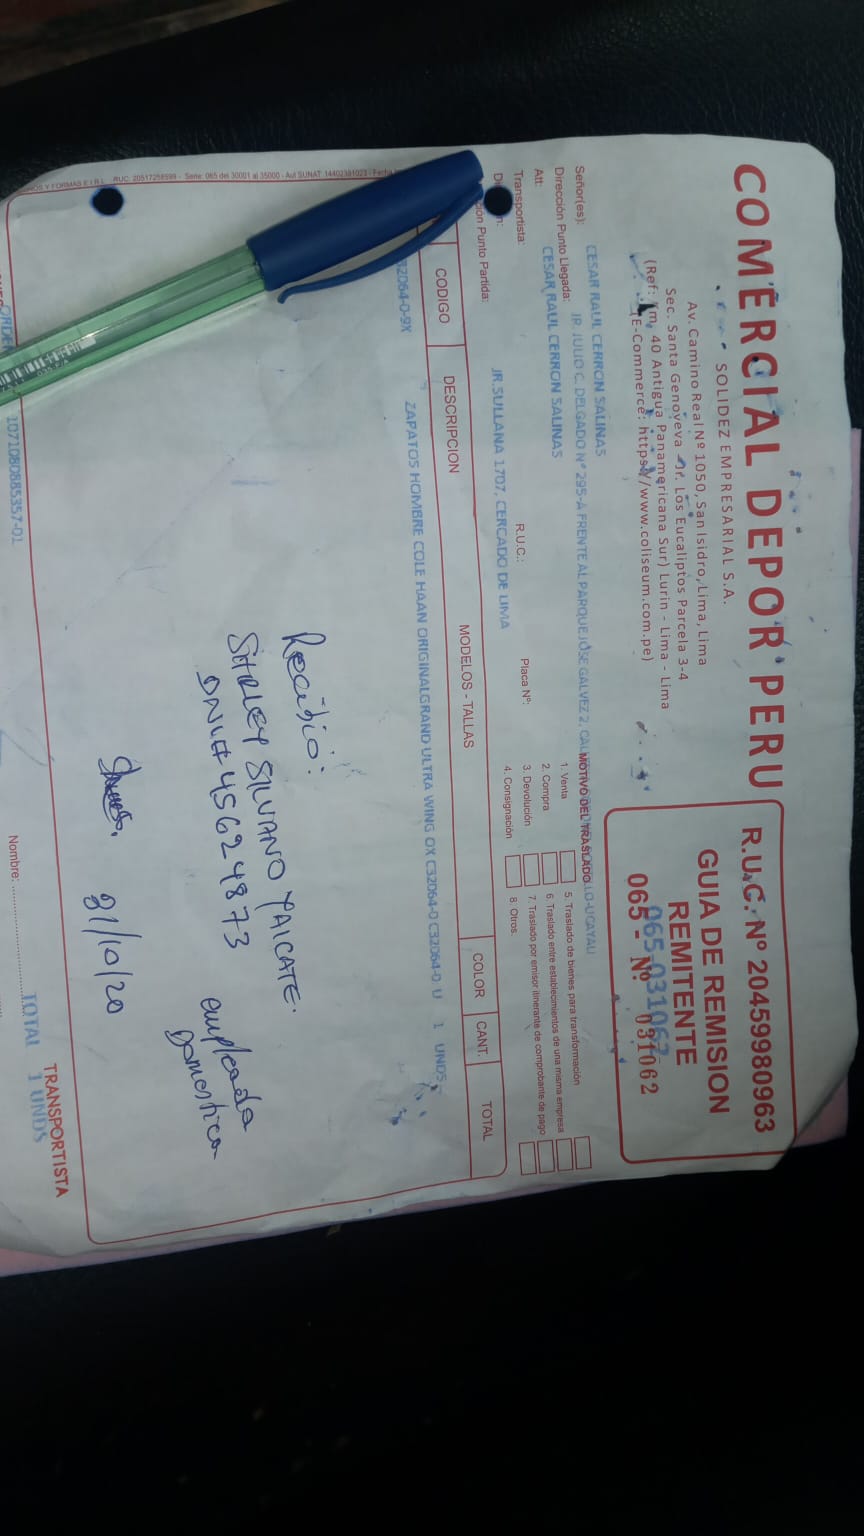 COMERCIAL DEPOR PERU
SOLIDEZ EMPRESARIAL S.A.
Av. Camino Real Nº 1050, San Isidro, Lima, Lima
Sec. Santa Genoveva Jr. Los Eucaliptos Parcela 3-4
(Ref: Km. 40 Antigua Panamericana Sur) Lurin - Lima - Lima
(E-Commerce: https://www.coliseum.com.pe)
R.U.C. Nº 20459980963
GUIA DE REMISION
REMITENTE
065-031062
065 - Nº 031062
Señor(es): CESAR RAUL CERRON SALINAS
Dirección Punto Llegada: JR. JULIO C. DELGADO N° 295-A FRENTE AL PARQUE JOSE GALVEZ 2,
Att: CESAR RAUL CERRON SALINAS
Transportista: R.U.C.: Placa Nº:
Punto Partida: JR.SULLANA 1707, CERCADO DE LIMA
MOTIVO DEL TRASLADO
1. Venta
2. Compra
3. Devolución
4. Consignación
5. Traslado de bienes para transformación
6. Traslado entre establecimientos de una misma empresa
7. Traslado por emisor itinerante de comprobante de pago
8. Otros.
CODIGO DESCRIPCION MODELOS - TALLAS COLOR CANT. TOTAL
32064-0-9X ZAPATOS HOMBRE COLE HAAN ORIGINALGRAND ULTRA WING OX C32064-0 C32064-0 U 1 UNDS
Recibio:
SHIRLEY SILVANO YAICATE.
DNI# 45624873
empleada
Domestica
21/10/20
TOTAL 1 UNDS
TRANSPORTISTA
Nombre:
ORDEN
1071080885357-01
Y FORMAS E.I.R.L. RUC: 20517258599 - Serie: 065 del 30001 al 35000 - Aut SUNAT 14402381023 - Fecha